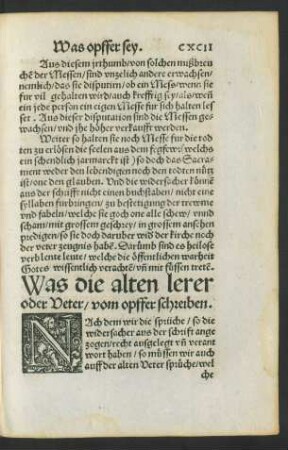 Was opffer sey. CXCII
Aus diesem jrthumb/von solchen mißbreu
chẽ der Messen/sind vnzelich andere erwachsen/
nemlich/das sie disputirn/ob ein Mess/wenn sie
fur vil gehalten wird/auch krefftig sey/als/weñ
ein jede person ein eigen Messe fur sich halten les
set. Aus dieser disputation sind die Messen ge
wachsen/vnd jhe höher verkaufft worden.
Weiter so halten sie noch Messe fur die tod
ten zu erlösen die seelen aus dem fegfewr/welchs
ein schendlich jarmarckt ist) so doch das Sacra-
ment weder den lebendigen noch den todten nütz
ist/one den glauben. Vnd die widersacher könnẽ
aus der schrifft nicht einen buchstaben/nicht eine
syllaben furbringen/zu bestetigung der trewme
vnd fabeln/welche sie goch one alle schew/vnnd
scham/mit grossem geschrey/im grossem ansehen
predigen/so sie doch daruber widder kirche noch
der veter zeugnis habẽ. Darumb sind es heilose
verblente leute/welche die öffentlichen warheit
Gotes wissentlich verachtẽ/vñ mit füssen tretẽ.
Was die alten lerer
oder Veter/vom opffer schreiben.
NAch dem wir die sprüche/so die
widersacher aus der schrifft ange
zogen/recht ausgelegt vñ verant
wort haben/so müssen wir auch
auff der alten Veter sprüche/wel
che